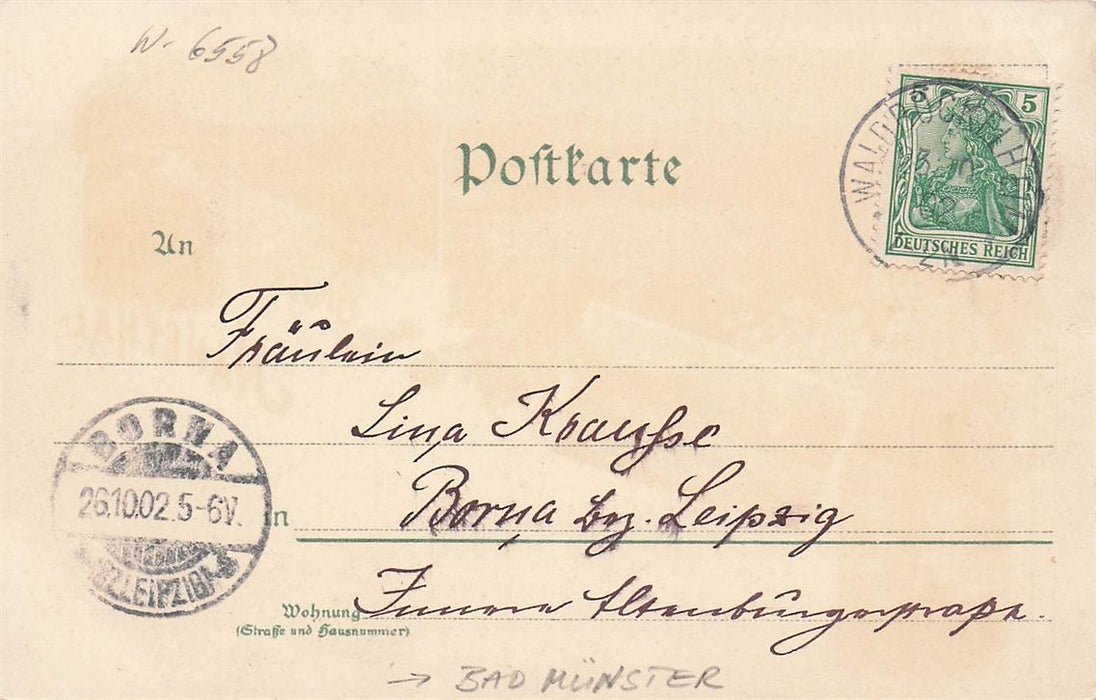 W. 6558
Postkarte
5 5
DEUTSCHES REICH
An
Fräulein
Lina Krauße
BORNA
26.10.02.5-6V.
(BZ.LEIPZIG)
In
Borna bz. Leipzig
Wohnung
(Straße und Hausnummer)
Innere Altenburgerstraße.
→ BAD MÜNSTER